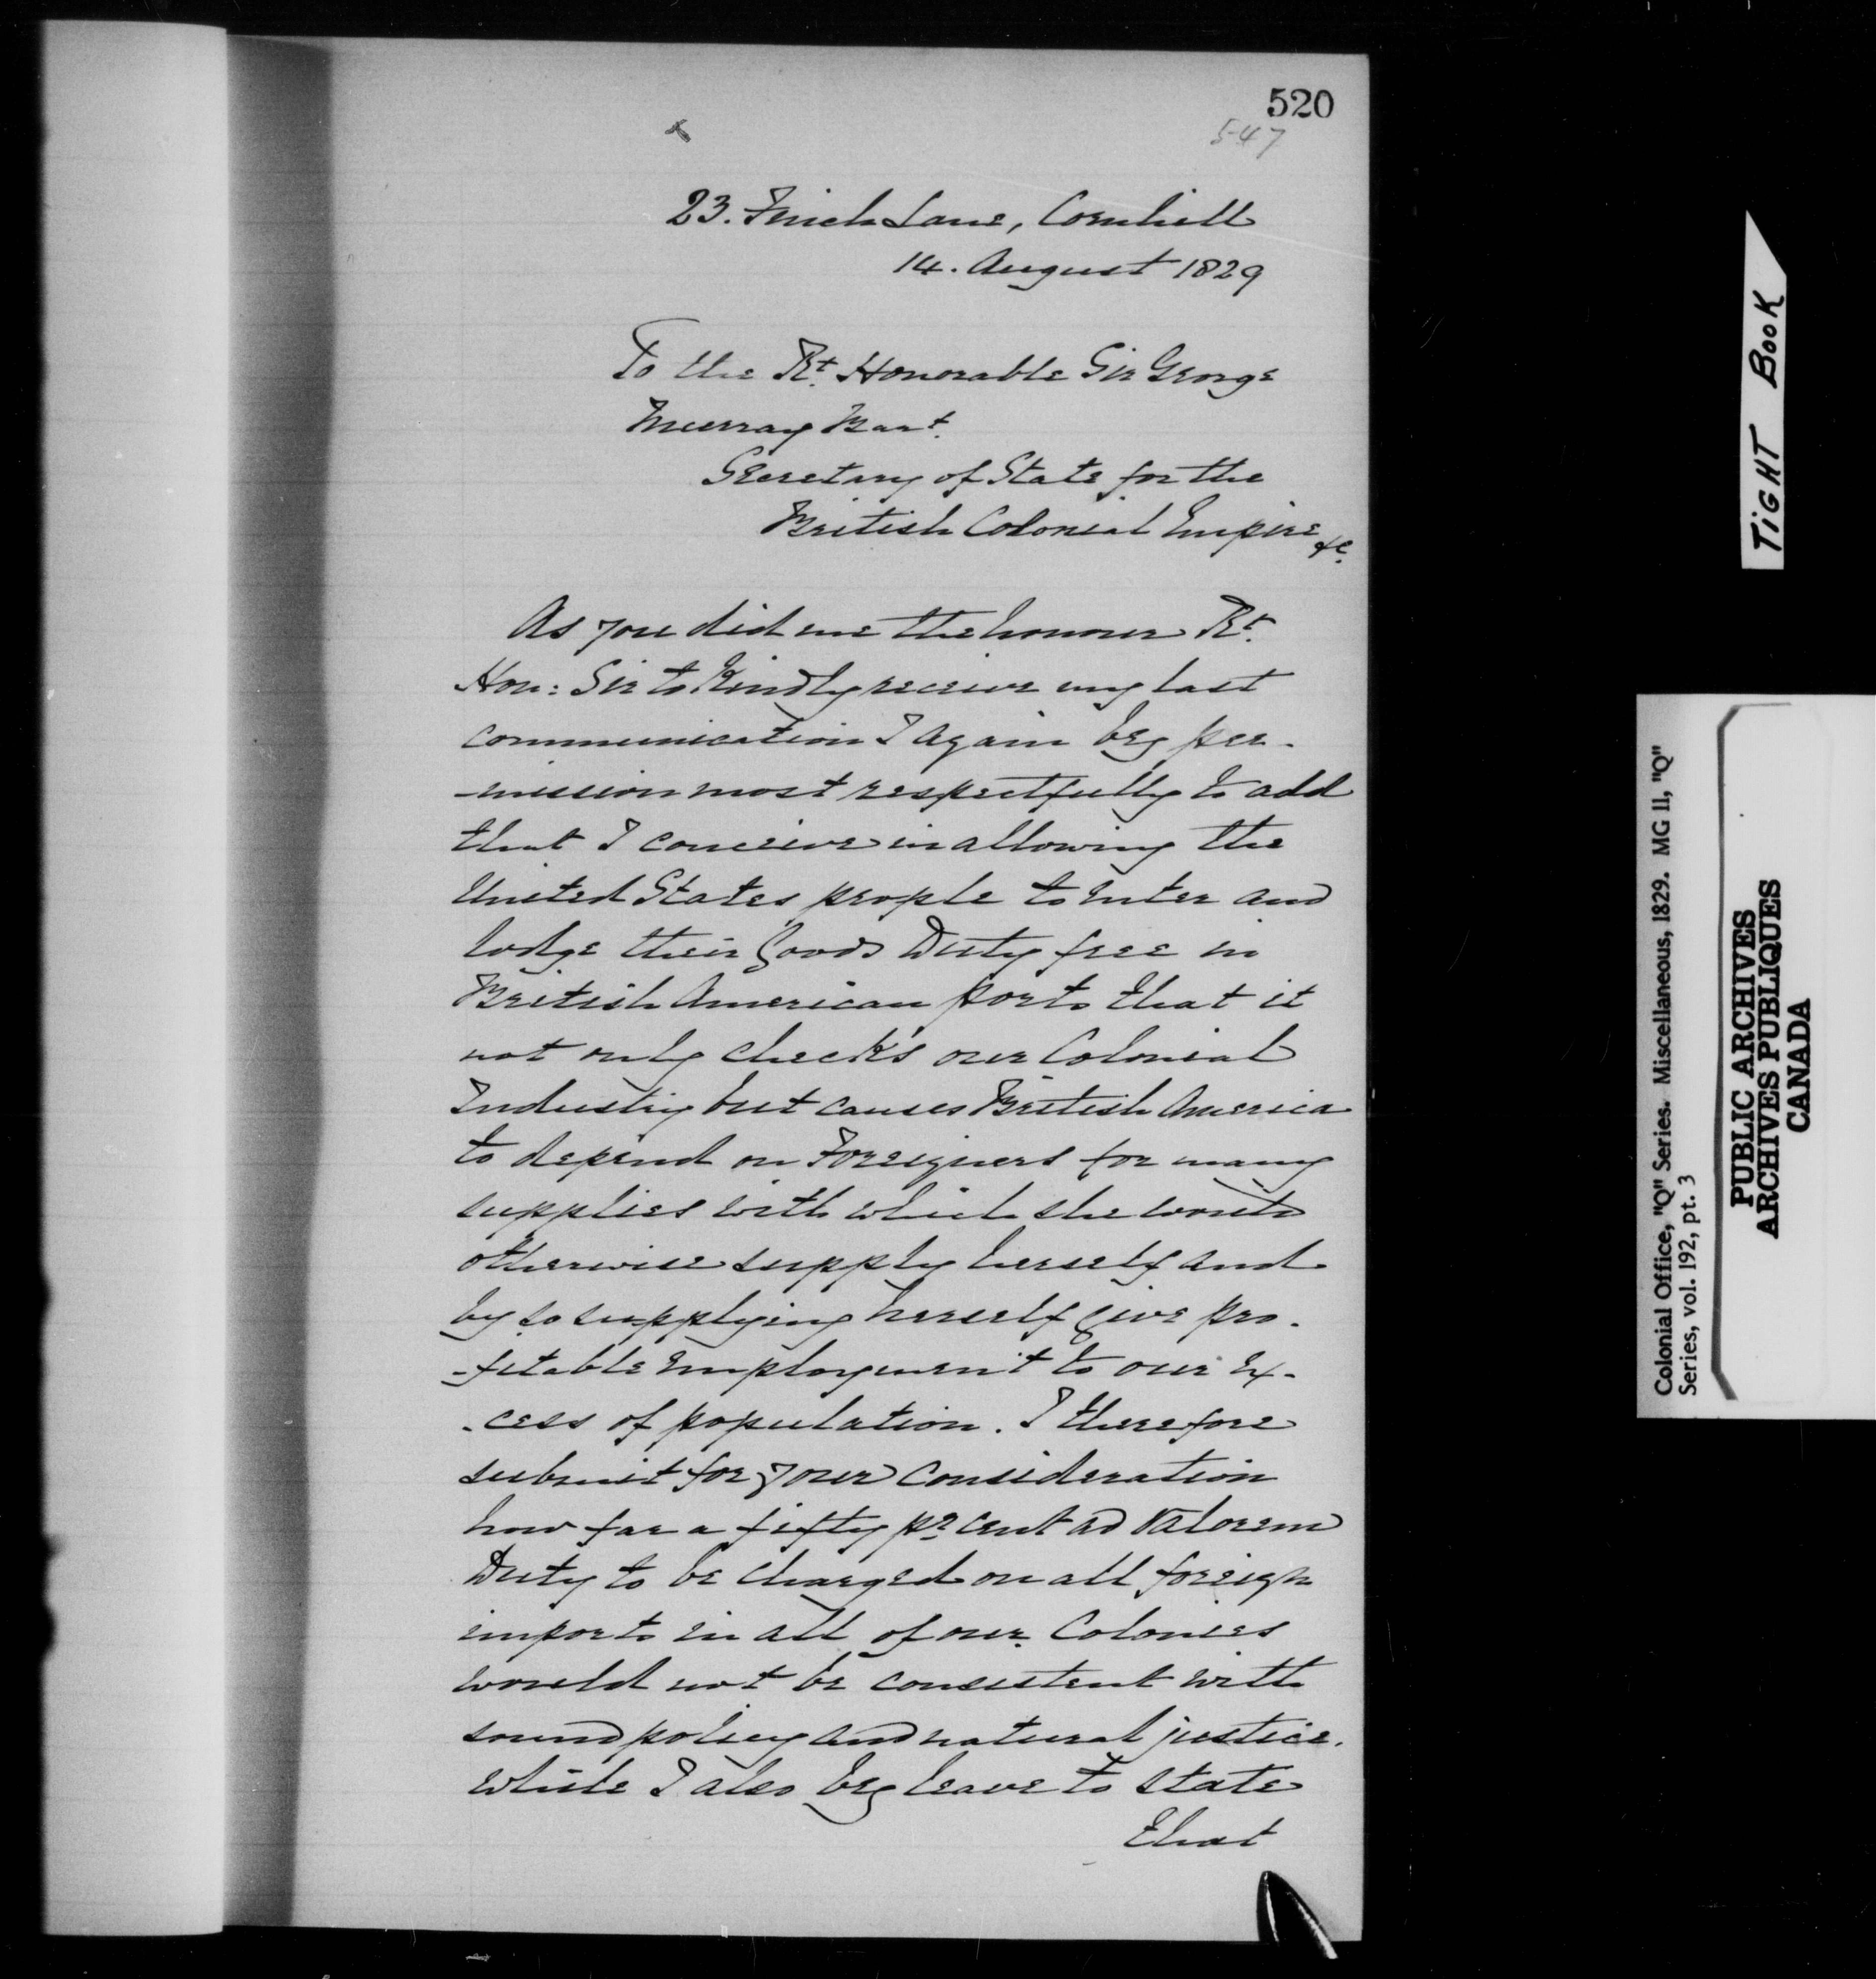 520
547
23. Finch Lane, Cornhill
14. August 1829
To the Rt. Honorable Sir George
Murray Bart.
Secretary of State for the
British Colonial Empire &c.
As you did me the honour Rt.
Hon: Sir to Kindly receive my last
communication I again beg per-
-mission most respectfully to add
that I conceive in allowing the
United States people to enter and
lodge their Goods Duty free in
British American ports that it
not only checks our Colonial
Industry but causes British America
to depend on Foreigners for many
supplies with which she would
otherwise supply herself and
by so supplying herself give pro-
-fitable employment to our ex-
-cess of population. I therefore
submit for your consideration
how far a fifty pr cent ad valorem
Duty to be charged on all foreign
imports in all of our Colonies
would not be consistent with
sound policy and natural justice.
while I also beg leave to state
that
TIGHT BOOK
Colonial Office, "Q" Series. Miscellaneous, 1829. MG 11, "Q"
Series, vol. 192, pt. 3
PUBLIC ARCHIVES
ARCHIVES PUBLIQUES
CANADA